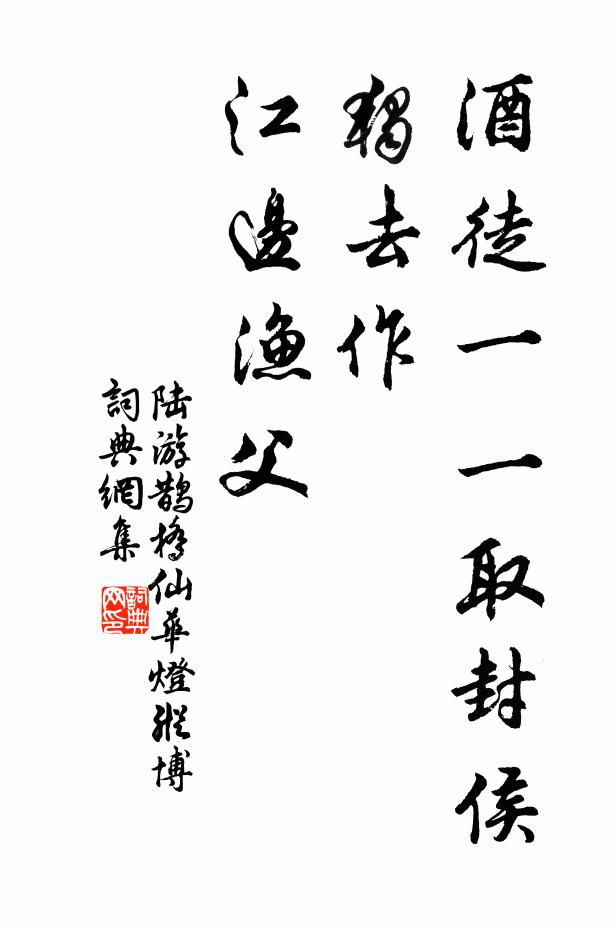 酒徒一一取封侯
獨去作
江邊漁父
陆游鹊橋仙華燈縱博
詞典網集
詞典
网印